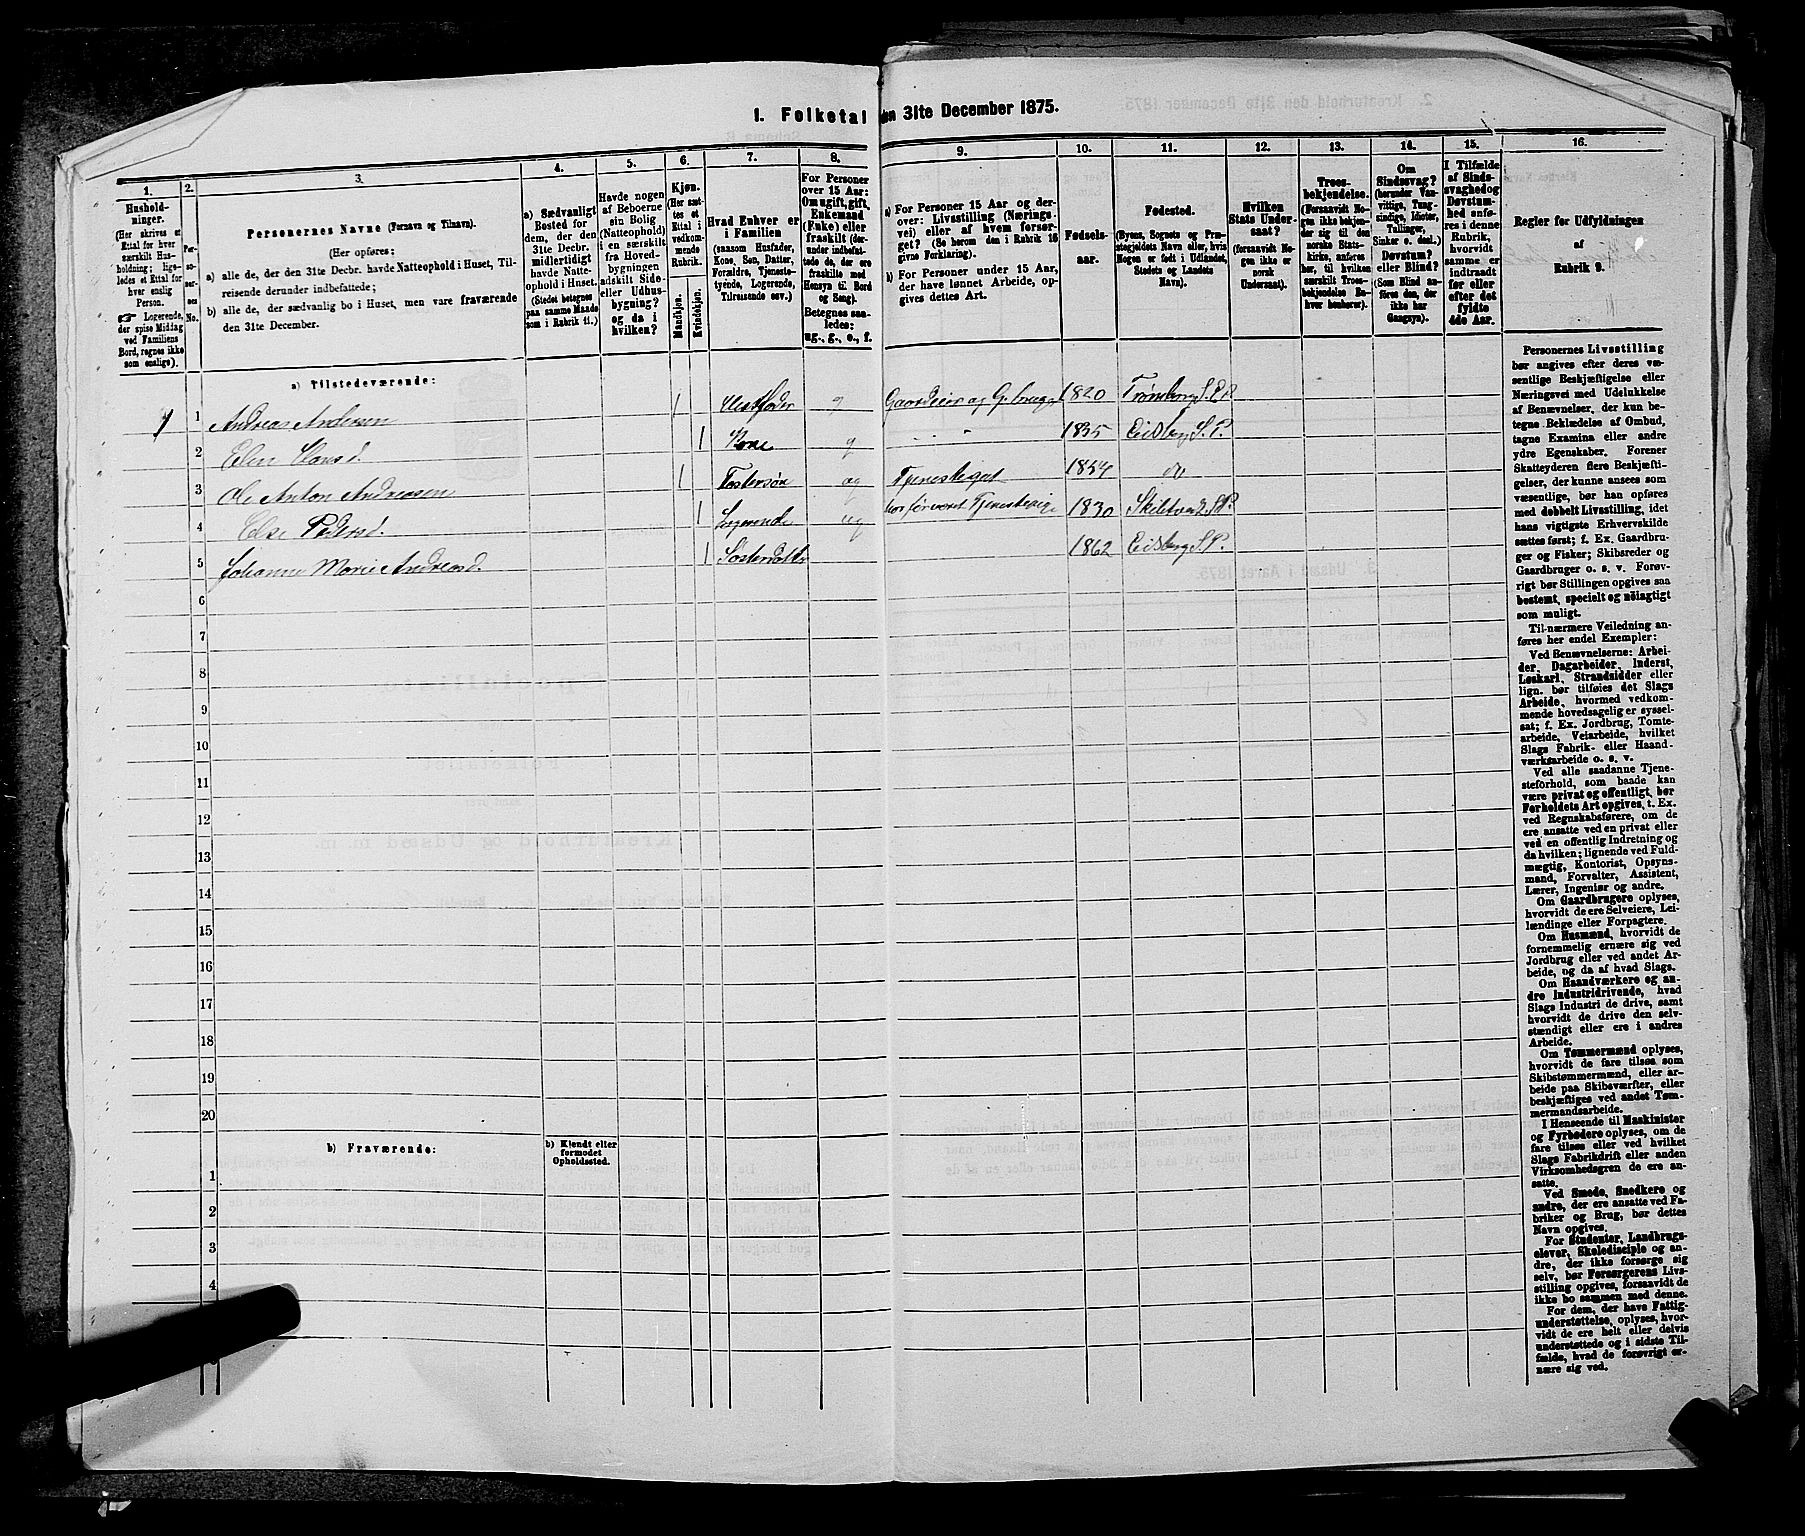 1. Folketal den 31te December 1875.
1. 2. 3. 4. 5. 6. 7. 8. 9. 10. 11. 12. 13. 14. 15. 16.
Hushold-
ninger.
(Her skrives et
Ettal for hver
særskilt Hus-
holdning; lige-
ledes et Ettal for
hver enslig
Person.
☞ Logerende,
der spise Middag
ved Familiens
Bord, regnes ikke
som enslige).
Per-
so-
ner-
nes
No.
Personernes Navne (Fornavn og Tilnavn).
(Her opføres:
a) alle de, der den 31te Decbr. havde Natteophold i Huset, Til-
reisende derunder indbefattede;
b) alle de, der sædvanlig bo i Huset, men vare fraværende
den 31te December.
a) Sædvanligt
Bosted for
dem, der den
31te Decbr.
midlertidigt
havde Natte-
ophold i Huset.
(Stedet betegnes
paa samme Maade
som i Rubrik 11.)
Havde nogen
af Beboerne
sin Bolig
(Natteophold)
i en særskilt
fra Hoved-
bygningen
adskilt Side-
eller Udhus-
bygning?
og da i
hvilken?
Kjøn.
(Her sæt-
tes et
Ettal i
vedkom-
mende
Rubrik.
Mandkjøn.
Kvindekjøn.
Hvad Enhver er
i Familien
(saasom Husfader,
Kone, Søn, Datter,
Forældre, Tjeneste-
tyende, Logerende,
Tilreisende osv.)
For Personer
over 15 Aar:
Om ugift, gift,
Enkemand
(Enke) eller
fraskilt (der-
under indbefat-
tede de, der ere
fraskilte med
Hensyn til Bord
og Seng).
Betegnes saa-
ledes:
ug., g., e., f.
a) For Personer 15 Aar og der-
over: Livsstilling (Nærings-
vei) eller af hvem forsør-
get? (Se herom den i Rubrik 16
givne Forklaring).
b) For Personer under 15 Aar,
der have lønnet Arbeide, op-
gives dettes Art.
Fødsels-
aar.
Fødested.
(Byens, Sognets og Præ-
stegjeldets Navn eller, hvis
Nogen er født i Udlandet,
Stedets og Landets
Navn).
Hvilken
Stats Under-
saat?
(forsaavidt No-
gen ikke er
norsk
Undersaat).
Troes-
bekjendelse.
(Forsaavidt No-
gen ikke bekjen-
der sig til den
norske Stats-
kirke, anføres
her, til hvilken
særskilt Troes-
bekjendelse En-
hver henhører).
Om
Sindssvag?
(herunder Van-
vittige, Tung-
sindige, Idioter,
Tullinger,
Sinker o. desl.)
Døvstum?
eller Blind?
(Som Blind an-
føres den, der
ikke har
Gangsyn).
I Tilfælde
af Sinds-
svaghed og
Døvstum-
hed anfø-
res i denne
Rubrik,
hvorvidt
samme er
indtraadt
før eller
efter det
fyldte
4de Aar.
Regler for Udfyldningen
af
Rubrik 9.
a) Tilstedeværende:
1 1 Andreas Andersen 1 Husfader g Gaardeier og G. brug 1820 Trømborg S. E. P.
2 Elen Clausd. 1 Kone g " " 1835 Eidsberg S. P.
3 Ole Anton Andreasen 1 Fostersøn ug Tjenestegut 1854 do
4 Else Pedersd. 1 Logerende ug Tjenestepige 1830 S. P.
5 Johanne Marie Andreasd. 1 Søsterdatter 1862 Eidsberg S. P.
6
7
8
9
10
11
12
13
14
15
16
17
18
19
20
b) Fraværende:
b) Kjendt eller
formodet
Opholdssted.
1
2
3
4
Personernes Livsstilling
bør angives efter deres væ-
sentlige Beskjæftigelse eller
Næringsvei med Udelukkelse
af Benævnelser, der kun be-
tegne Beklædelse af Ombud,
tagne Examina eller andre
ydre Egenskaber. Forener
Skatteyderen flere Beskjæfti-
gelser, der kunne ansees som
væsentlige, bør han opføres
med dobbelt Livsstilling, idet
hans vigtigste Erhvervskilde
sættes først; f. Ex. Gaardbru-
ger og Fisker; Skibsreder og
Gaardbruger o. s. v. Forøv-
rigt bør Stillingen opgives saa
bestemt, specielt og nöiagtigt
som muligt.
Til nærmere Veiledning an-
føres her endel Exempler:
Ved Benævnelserne: Arbei-
der, Dagarbeider, Inderst,
Løskarl, Strandsidder eller
lign. bør tilføies det Slags
Arbeide, hvormed vedkom-
mende hovedsagelig er syssel-
sat; f. Ex. Jordbrug, Tomte-
arbeide, Veiarbeide, hvilket
Slags Fabrik- eller Haand-
værksarbeide o. s. v.
Ved alle saadanne Tjene-
steforhold, som baade kan
være privat og offentligt, bør
Forholdets Art opgives, t. Ex.
ved Regnskabsførere, om de
ere ansatte ved en privat eller
ved en offentlig Indretning og
da hvilken; lignende ved Fuld-
mægtig, Kontorist, Opsyns-
mand, Forvalter, Assistent,
Lærer, Ingeniør og andre.
Om Gaardbrugere oplyses,
hvorvidt de ere Selveiere, Lei-
lændinge eller Forpagtere.
Om Husmænd, hvorvidt de
fornemmelig ernære sig ved
Jordbrug eller ved andet Ar-
beide, og da af hvad Slags.
Om Haandværkere og an-
dre Industridrivende, hvad
Slags Industri de drive, samt
hvorvidt de drive den selv-
stændigt eller ere i andres
Arbeide.
Om Tømmermænd oplyses,
hvorvidt de fare tilsøs som
Skibstømmermænd, eller ar-
beide paa Skibsværfter, eller
beskjæftiges ved andet Tøm-
mermandsarbeide.
I Henseende til Maskinister
og Fyrbødere oplyses, om de
fare tilsøs eller ved hvilket
Slags Fabrikdrift eller anden
Virksomhedsgren de ere an-
satte.
Ved Smede, Snedkere og
andre, der ere ansatte ved Fa-
briker og Brug, bør dettes
Navn opgives.
For Studenter, Landbrugs-
elever, Skoledisciple og an-
dre, der ikke forsørge sig
selv, bør Forsørgerens Livs-
stilling opgives, forsaavidt de
ikke bo sammen med denne.
For dem, der have Fattig-
understøttelse, oplyses, hvor-
vidt de ere helt eller delvis
understøttede og i sidste Til-
fælde, hvad de forøvrigt er-
nære sig ved.